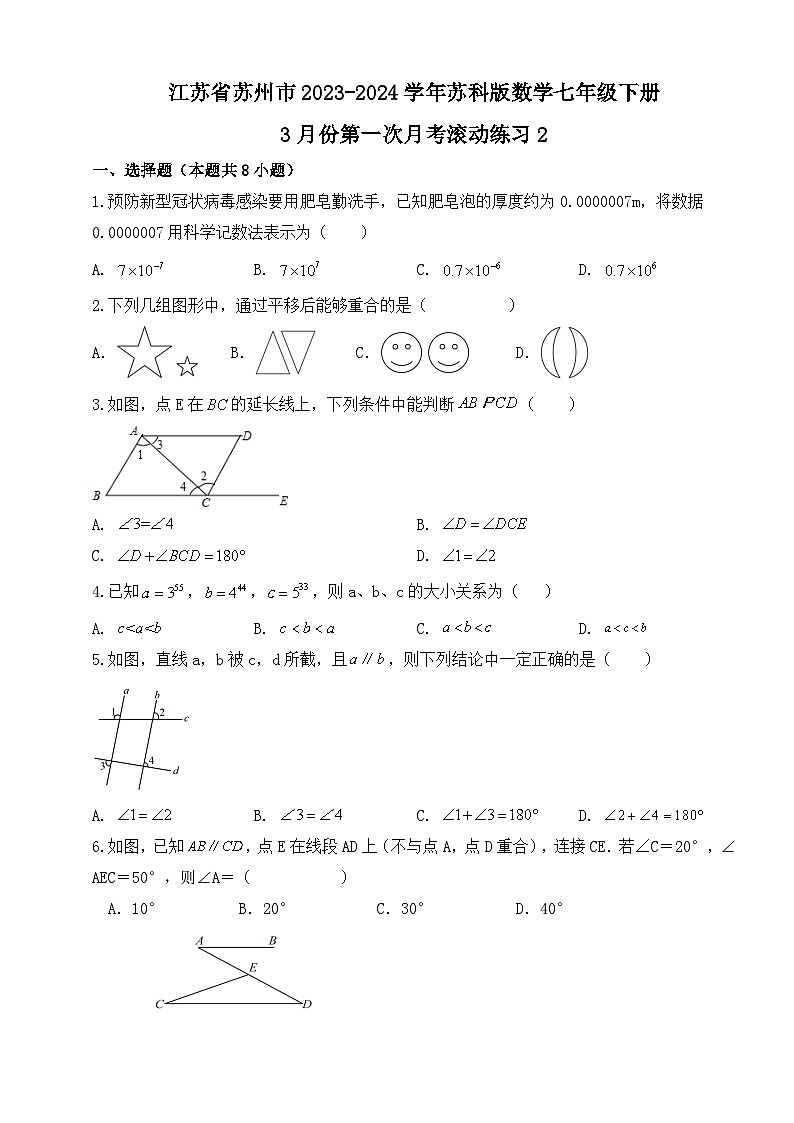 江苏省苏州市2023-2024学年苏科版数学七年级下册
3月份第一次月考滚动练习2
一、选择题（本题共8小题）
1.预防新型冠状病毒感染要用肥皂勤洗手，已知肥皂泡的厚度约为0.0000007m，将数据
0.0000007用科学记数法表示为（　　）
A. 7×10⁻⁷ B. 7×10⁷ C. 0.7×10⁻⁶ D. 0.7×10⁶
2.下列几组图形中，通过平移后能够重合的是（　　）
A. B. C. D.
3.如图，点E在BC的延长线上，下列条件中能判断AB P CD（　　）
A D 3 1 2 4 B C E
A. ∠3=∠4 B. ∠D=∠DCE
C. ∠D+∠BCD=180° D. ∠1=∠2
4.已知a=3⁵⁵，b=4⁴⁴，c=5³³，则a、b、c的大小关系为（　　）
A. c<a<b B. c<b<a C. a<b<c D. a<c<b
5.如图，直线a，b被c，d所截，且a∥b，则下列结论中一定正确的是（　　）
a b 1 2 c 3 4 d
A. ∠1=∠2 B. ∠3=∠4 C. ∠1+∠3=180° D. ∠2+∠4=180°
6.如图，已知AB∥CD，点E在线段AD上（不与点A，点D重合），连接CE．若∠C＝20°，∠
AEC＝50°，则∠A＝（　　）
A．10° B．20° C．30° D．40°
A B E C D